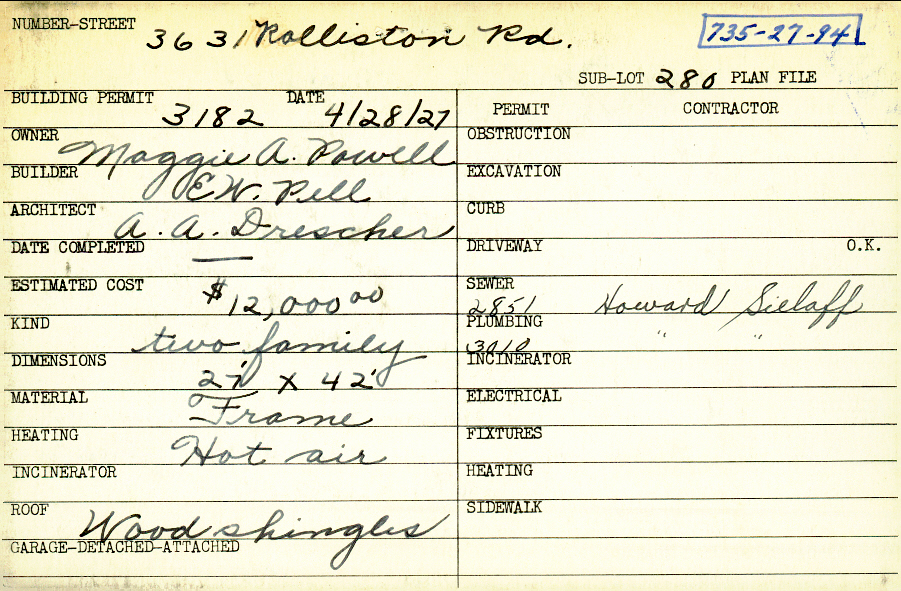 NUMBER-STREET 3631 Rolliston Rd. 735-27-94
SUB-LOT 280 PLAN FILE
BUILDING PERMIT 3182 DATE 4/28/27
PERMIT CONTRACTOR
OWNER Maggie A. Powell
OBSTRUCTION
BUILDER E.W. Pell
EXCAVATION
ARCHITECT A. A. Drescher
CURB
DATE COMPLETED —
DRIVEWAY O.K.
ESTIMATED COST $12,000.00
SEWER 2851 Howard Sielaff
KIND two family
PLUMBING 3010 " "
DIMENSIONS 27' X 42'
INCINERATOR
MATERIAL Frame
ELECTRICAL
HEATING Hot air
FIXTURES
INCINERATOR
HEATING
ROOF Wood shingles
SIDEWALK
GARAGE-DETACHED-ATTACHED